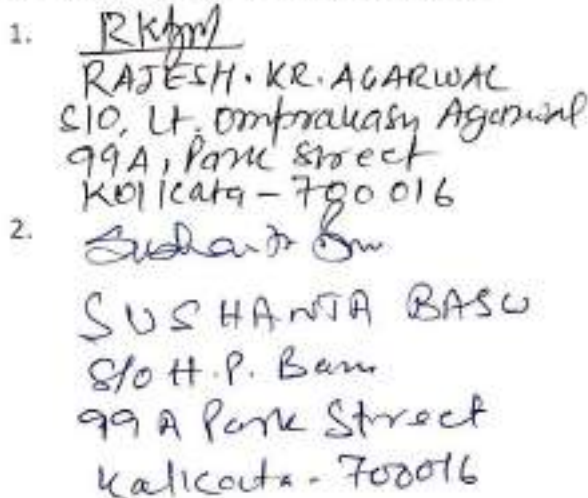 1.
RAJESH. KR. AGARWAL
S/O, Lt. Omprakash Agarwal
99A, Park Street
Kolkata - 700 016
2.
SUSHANTA BASU
S/o H.P. Basu
99 A Park Street
Kalicata - 700016